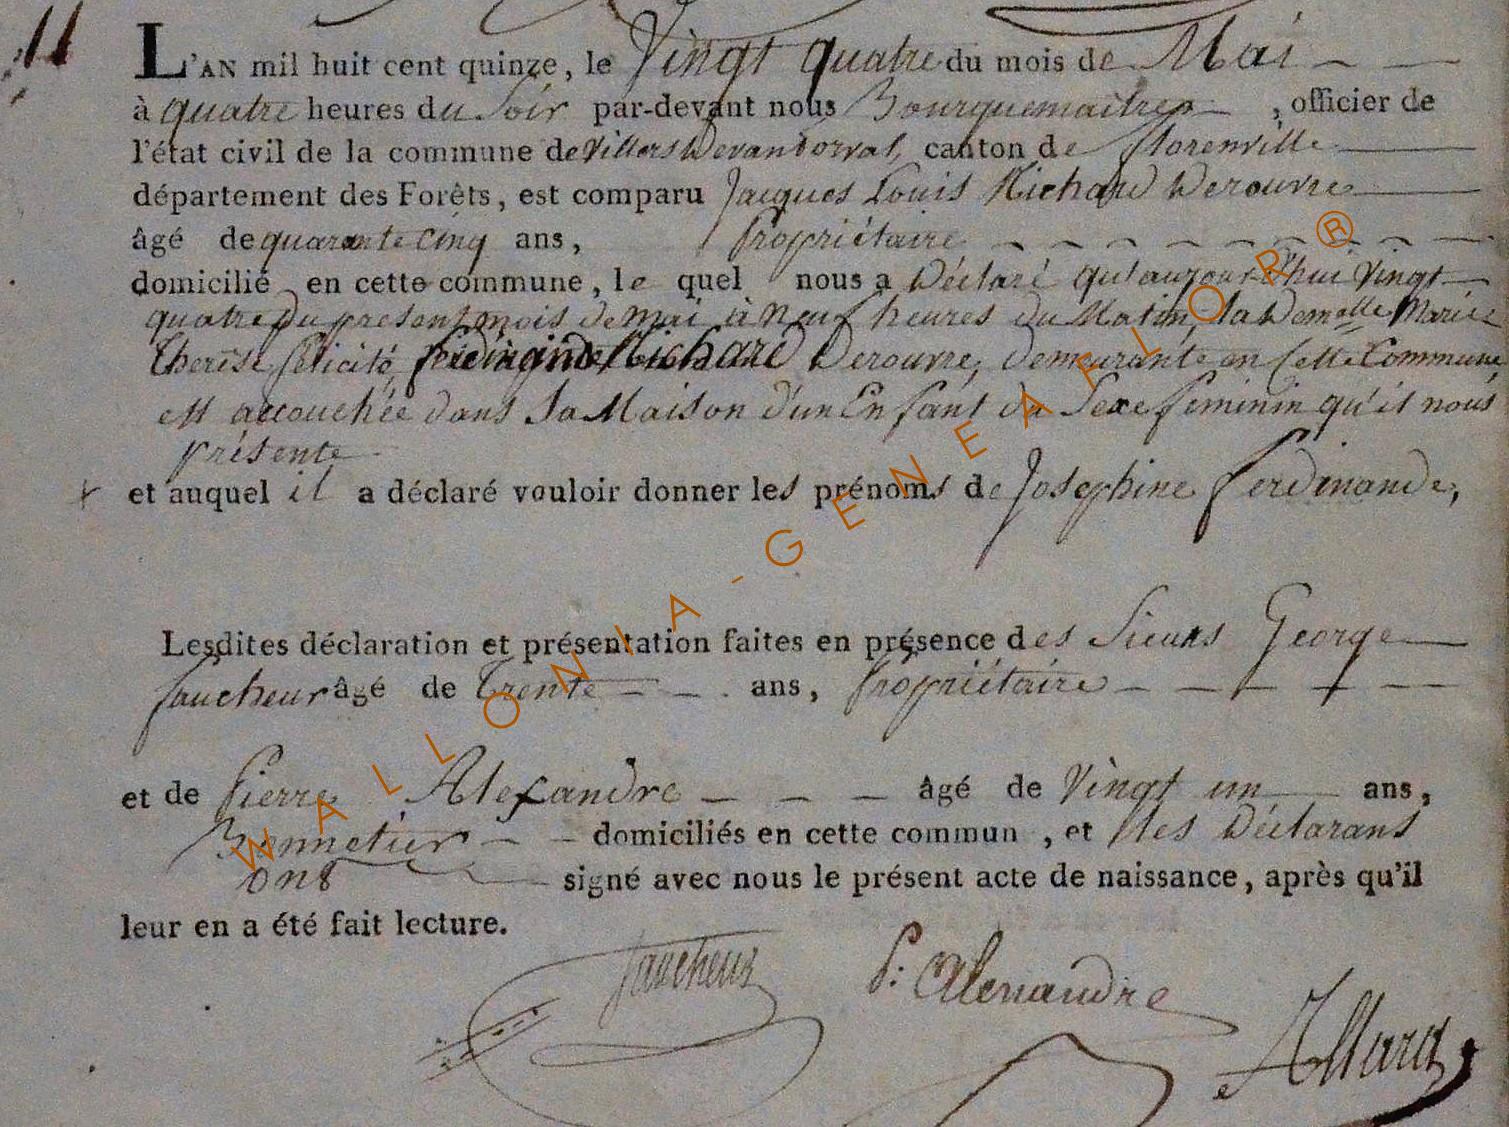 11
L'AN mil huit cent quinze, le Vingt quatre du mois de Mai
à quatre heures du Soir par-devant nous Bourguemaitre , officier de
l'état civil de la commune de Villers Devant orval, canton de florenville
département des Forêts, est comparu Jacques Louis Richard Derouvre
âgé de quarante cinq ans, Propriétaire
domicilié en cette commune, le quel nous a Déclaré qu'aujourd'hui Vingt
quatre Du present mois de Mai à Neuf heures du Matin, la Demelle Marie
Therese félicité, Richard Derouvre, demeurante en Cette Commune
est accouchée dans Sa Maison d'un Enfant du Sexe feminin qu'il nous
présente
et auquel il a déclaré vouloir donner les prénoms de Josephine ferdinande,
Lesdites déclaration et présentation faites en présence des Sieurs George
faucheur âgé de Trente ans, Propriétaire
et de Pierre Alexandre âgé de Vingt un ans,
Bonnetier domiciliés en cette commun , et les Déclarans
ont signé avec nous le présent acte de naissance, après qu'il
leur en a été fait lecture.
faucheur P: Alexandre Allard
WALLONIA-GENEAFLOR®